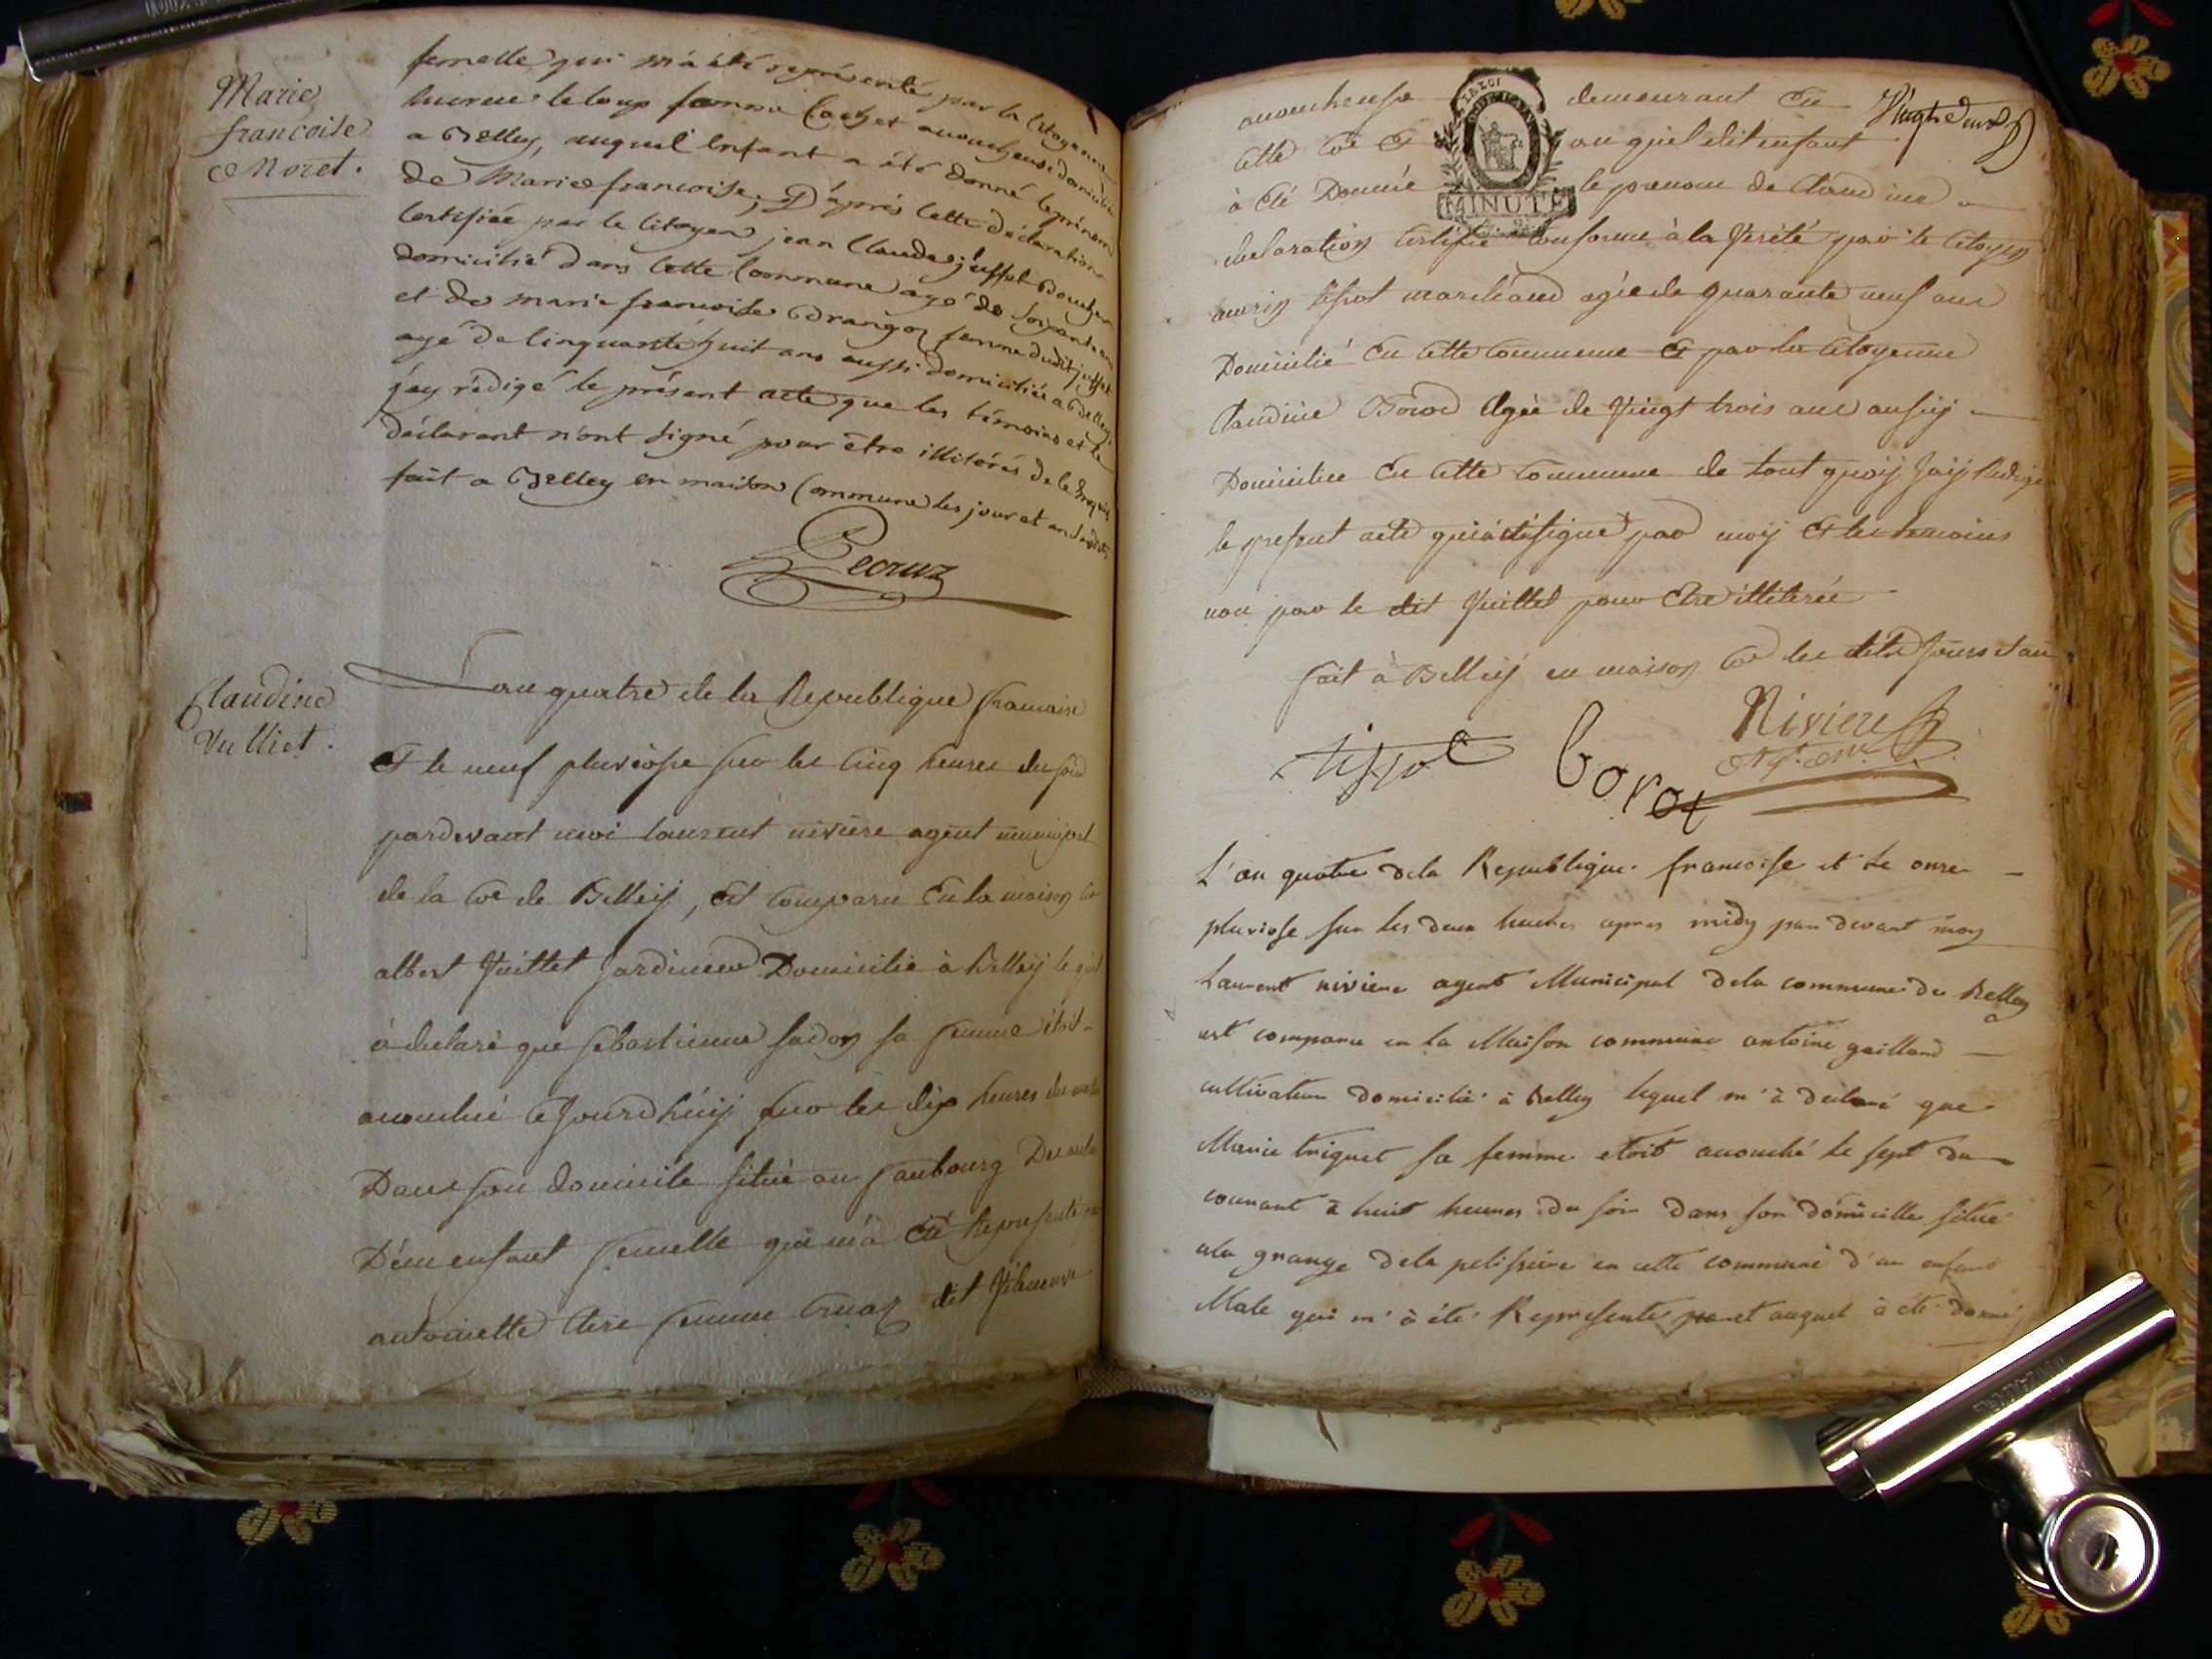 Marie
francoise
Moret.
femelle qui m'a été représenté par la Citoyenne
lucrece leloup femme Cachet accoucheuse domiciliée
a Belley, auquel Enfant a été donné le prénom
de Marie francoise, D'après cette déclaration
Certifiée par le Citoyen jean Claude juffet Boucher
domicilié dans Cette Commune agé de soixante ans
et de marie francoise Brangoz femme dudit juffet
agé de Cinquante huit ans aussi domiciliée a Belley,
j'ay rédigé le présent acte que les témoins et le
déclarant n'ont signé pour être illiterés de le requis
fait a Belley en maison Commune les jour et an susdits
Pecruz
Claudine
Vulliet.
Lan quatre de la Republique francaise
Et le neuf pluviose sur les Cinq heures du soir
pardevant moi laurent niviere agent municipal
de la Coe de Belleÿ, Est Comparu En la maison Coe
albert Vuillet Jardinier Domicilié à Belleÿ lequel
à declaré que sebastienne sadon sa femme étoit
accouchée Ce Jourdhuÿ sur les dix heures du matin
Dans son domicile situé au faubourg
D'un enfant femelle qui m'à Eté Representé par
antoinette Clere femme Cruaz dit Villeneuve
Vingt deux
accoucheuse demeurant En
Cette Coe Et au quel dit enfant
à Eté Donnée le prenom de Claudine
LA LOI
MINUTE
declaration Certifié Conforme à la Verité par le Citoyen
tissot marchand agée de quarante neuf ans
Domicilié En Cette Commune Et par la Citoyenne
Claudine Borod Agée de Vingt trois ans aussÿ
Domiciliee En Cette Commune de tout quoÿ Jaÿ Redigé
le present acte qui à été signé par moÿ Et les temoins
non par le dit Vuillet pour Etre illiterée
fait à Belleÿ en maison Coe les dits Jours et an
tissot Borot Niviere
agt. mal.
L'an quatre de la Republique francoise et Le onze
pluviose sur les deux heures apres midy par devant moy
Laurent niviere agent Municipal de la commune de Belley
est comparu en la Maison commune antoine gaillard
cultivateur domicilié à Belley lequel m'à declaré que
Marie triquet sa femme etoit accouché le sept du
courant à huit heures du soir dans son domicille situé
a la grange de la pelissiere en cette commune d'un enfant
Male qui m'à été Representé et auquel à été donné